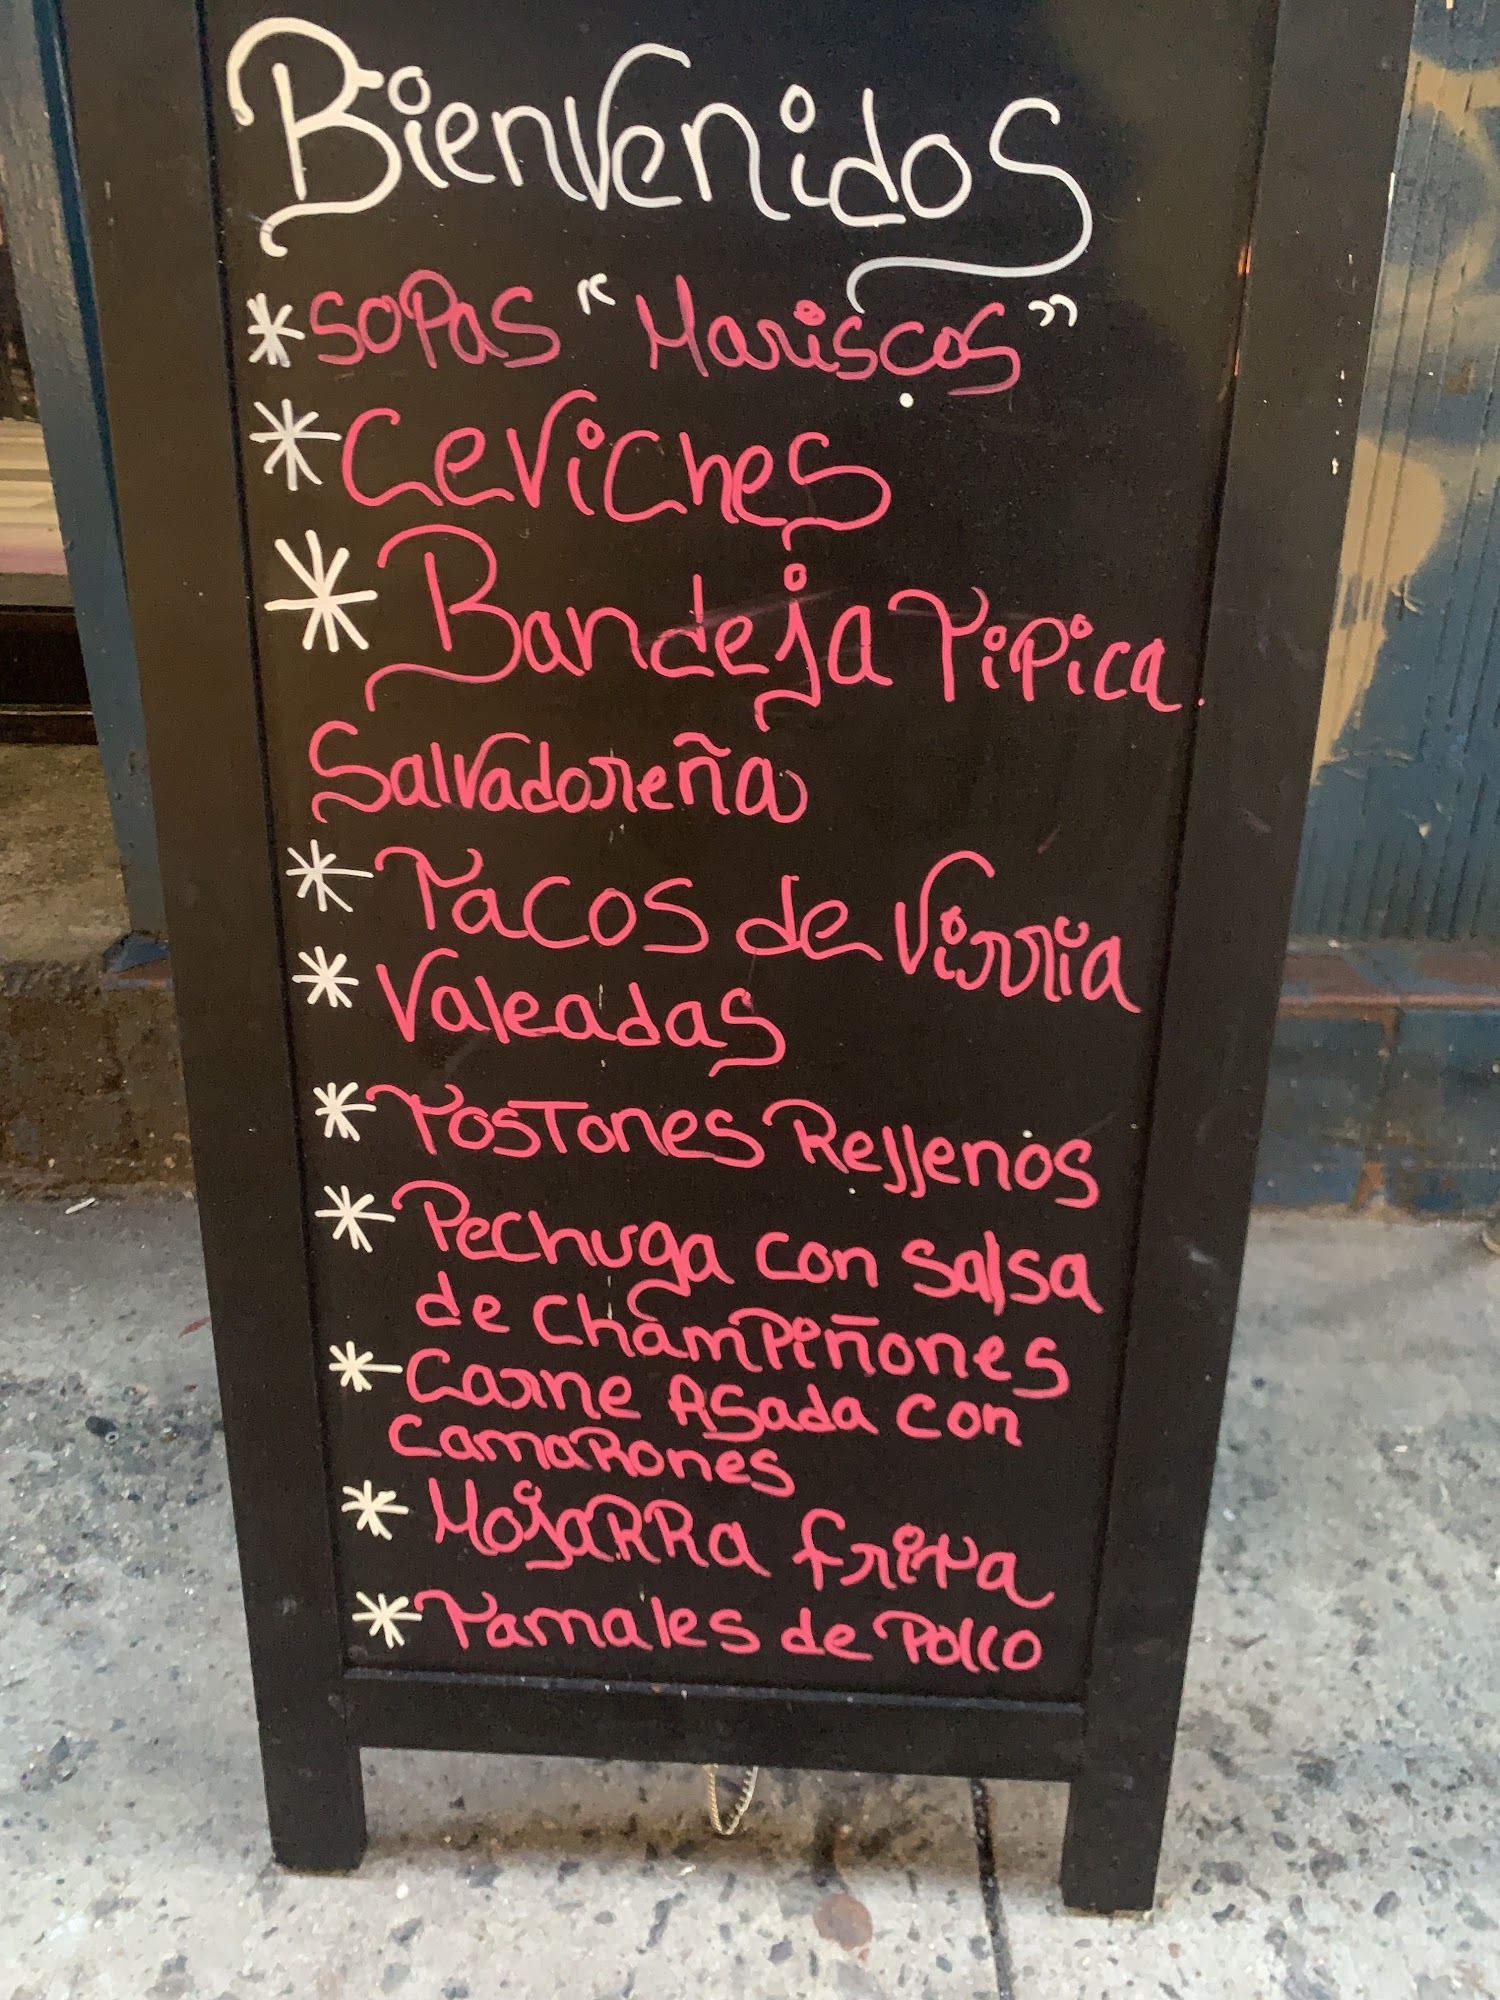 Bienvenidos
* Sopas "Mariscos"
* Ceviches
* Bandeja Tipica.
Salvadoreña
* Tacos de Virria
* Valeadas
* Tostones Rellenos
* Pechuga con salsa
de Champiñones
* Carne Asada con
Camarones
* Mojarra frita
* Tamales de Pollo